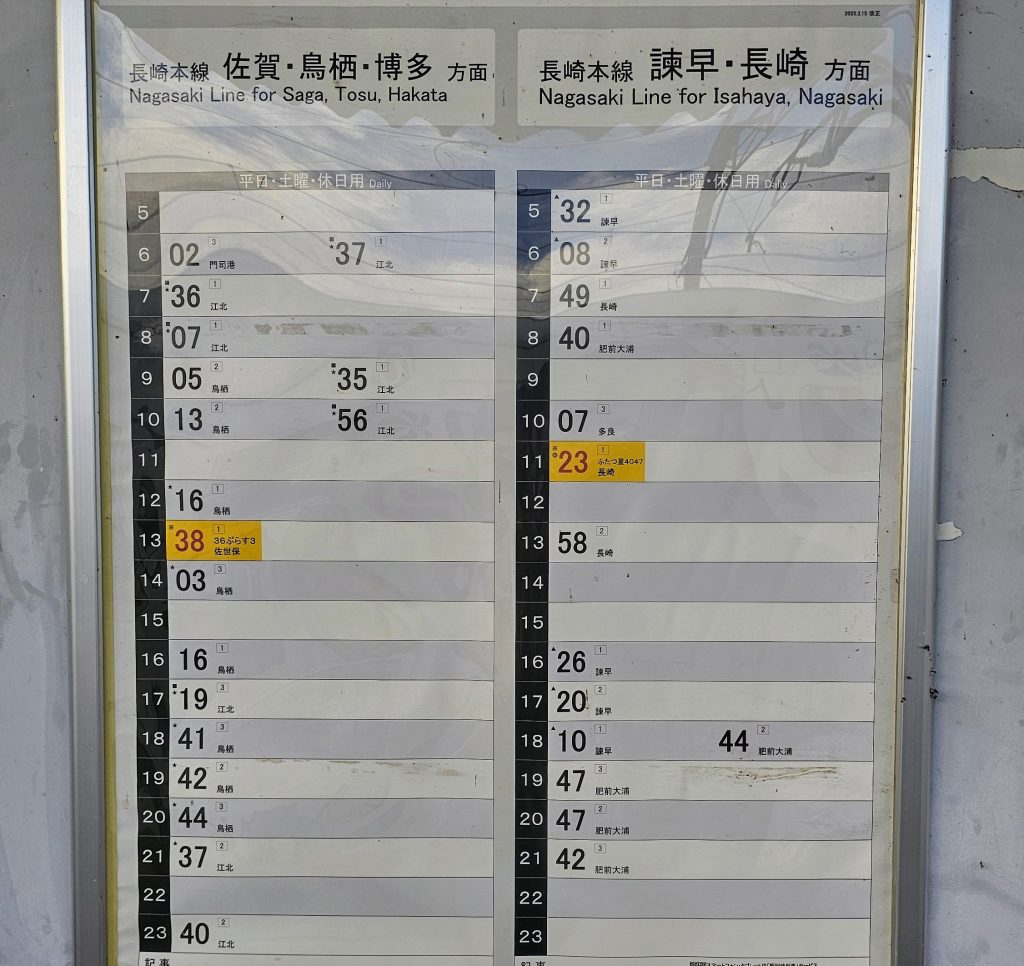 2025.3.15 改正
長崎本線 佐賀・鳥栖・博多 方面
Nagasaki Line for Saga, Tosu, Hakata
平日・土曜・休日用 Daily
5
6 02 3 門司港 ■★37 1 江北
7 ■★36 1 江北
8 ■★07 1 江北
9 05 2 鳥栖 ■★35 1 江北
10 13 2 鳥栖 ■★56 1 江北
11
12 ★16 1 鳥栖
13 ※38 1 36ぷらす3 佐世保
14 ★03 3 鳥栖
15
16 16 1 鳥栖
17 ■★19 3 江北
18 ★41 3 鳥栖
19 ★42 2 鳥栖
20 ★44 3 鳥栖
21 ★37 2 江北
22
23 40 2 江北
記事
長崎本線 諫早・長崎 方面
Nagasaki Line for Isahaya, Nagasaki
平日・土曜・休日用 Daily
5 ▲32 1 諫早
6 ▲08 2 諫早
7 49 1 長崎
8 40 1 肥前大浦
9
10 07 3 多良
11 ※◎23 1 ふたつ星4047 長崎
12
13 58 2 長崎
14
15
16 ▲26 1 諫早
17 ▲20 2 諫早
18 ▲10 1 諫早 44 2 肥前大浦
19 47 3 肥前大浦
20 47 2 肥前大浦
21 42 3 肥前大浦
22
23
記事